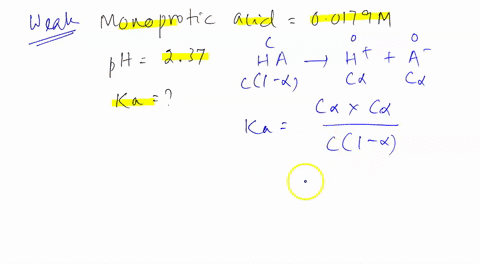 Weak Monoprotic acid = 0.0179M
pH = 2.37
C O O
HA → H⁺ + A⁻
C(1-α) Cα Cα
Ka = ?
Ka = Cα × Cα / C(1-α)